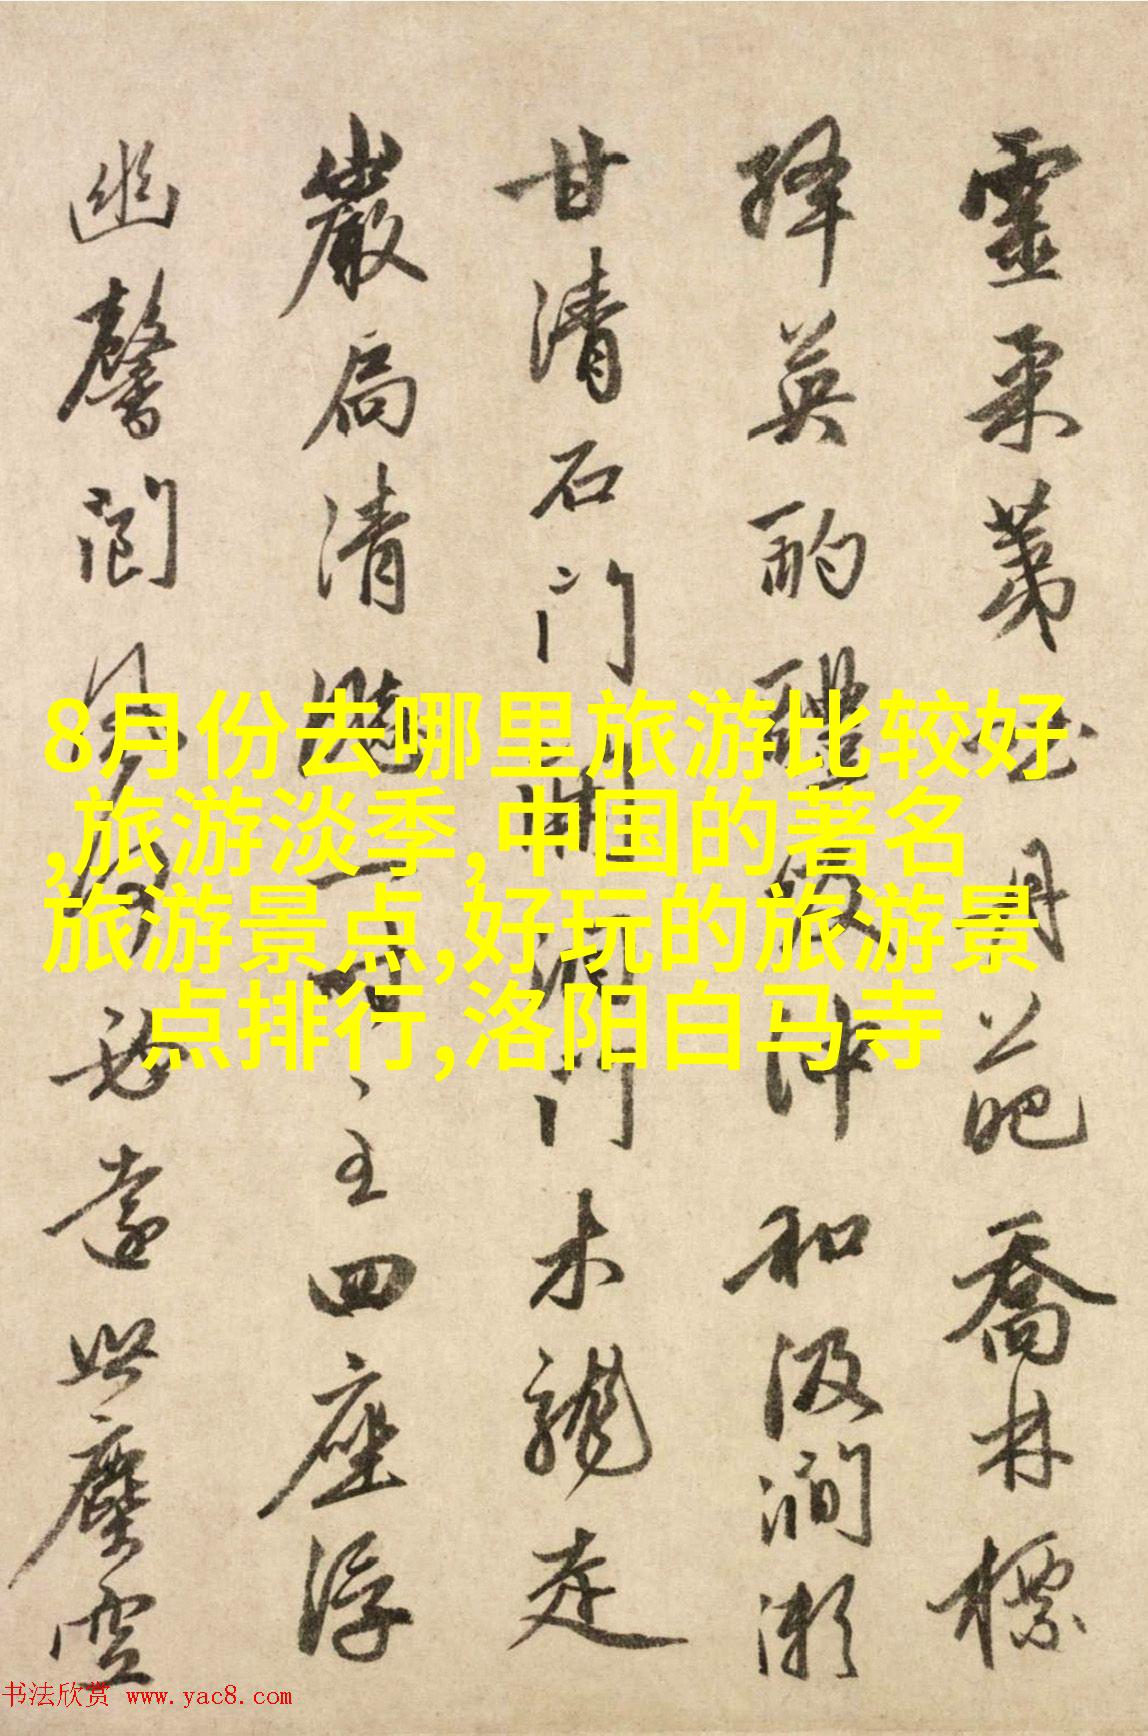 靈采荑丹葩喬林標
英酌醴沖和汲澗瀨
甘清石門澗門木龍走
巖扃清一主四座浮
幽馨閬遠塵雲
8月份去哪里旅游比较好
,旅游淡季,中国的著名
旅游景点,好玩的旅游景
点排行,洛阳白马寺
书法欣赏 www.yac8.com